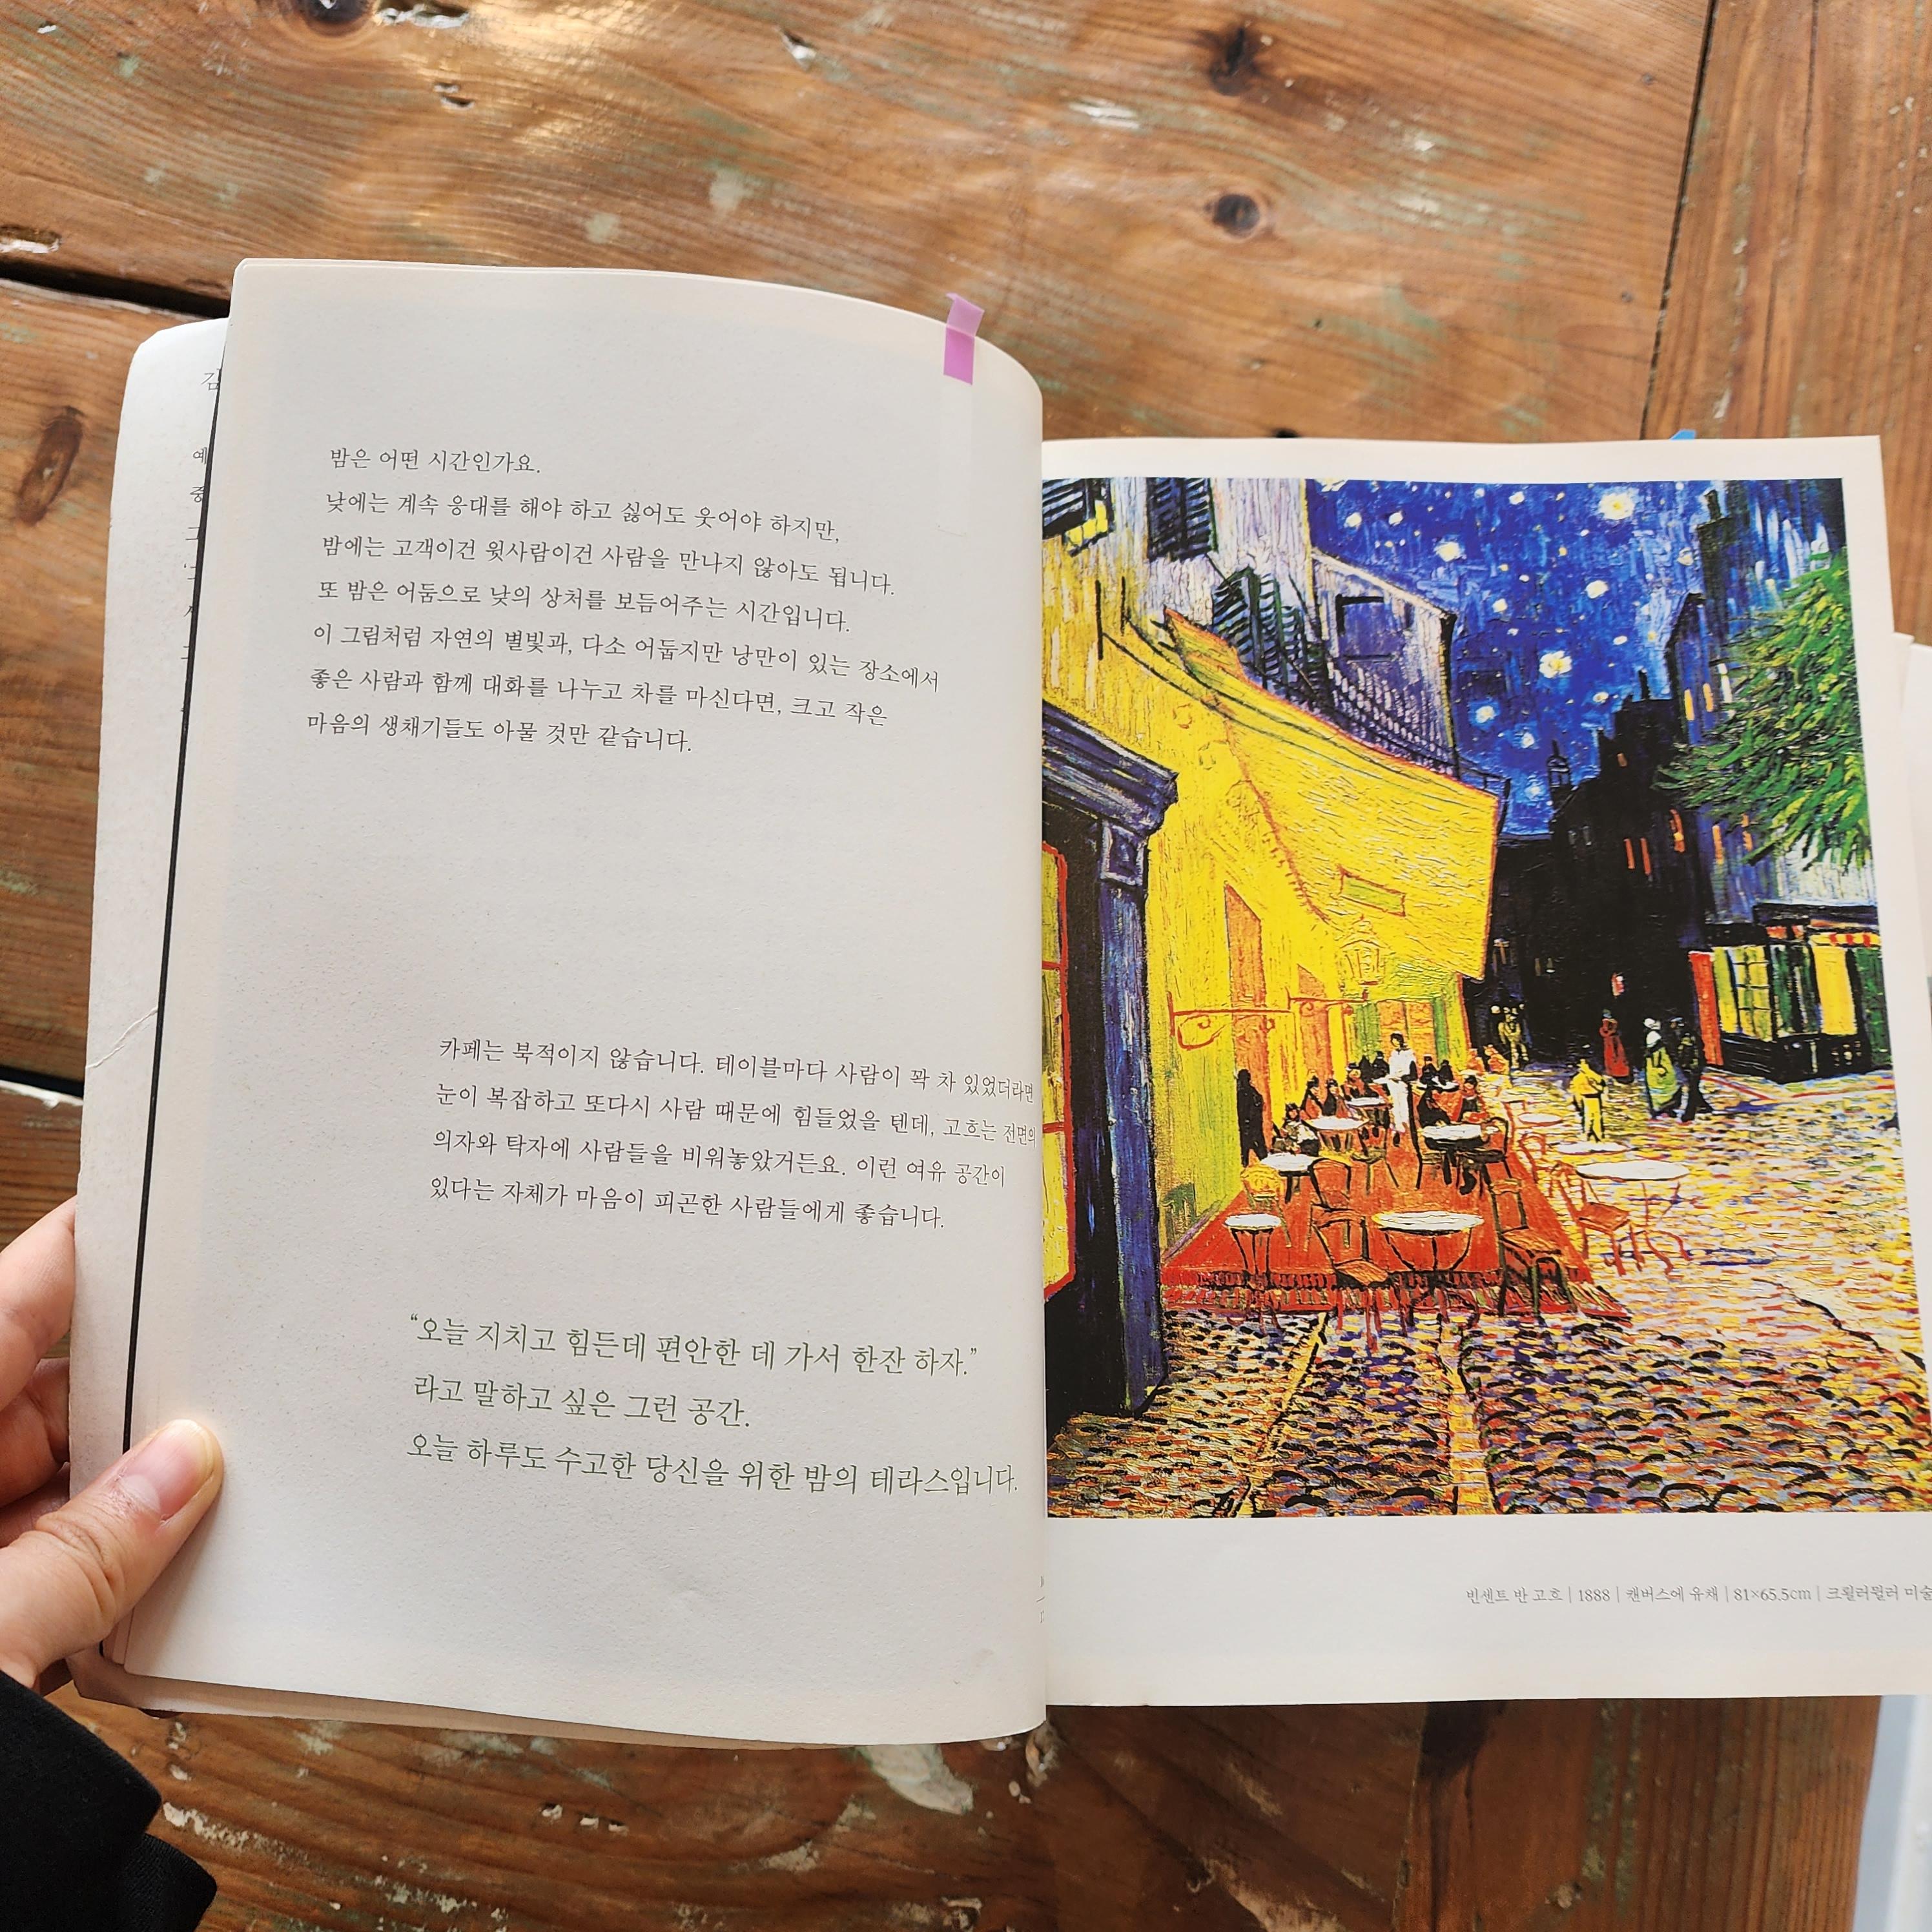 밤은 어떤 시간인가요.
낮에는 계속 응대를 해야 하고 싫어도 웃어야 하지만,
밤에는 고객이건 윗사람이건 사람을 만나지 않아도 됩니다.
또 밤은 어둠으로 낮의 상처를 보듬어주는 시간입니다.
이 그림처럼 자연의 별빛과, 다소 어둡지만 낭만이 있는 장소에서
좋은 사람과 함께 대화를 나누고 차를 마신다면, 크고 작은
마음의 생채기들도 아물 것만 같습니다.
카페는 북적이지 않습니다. 테이블마다 사람이 꽉 차 있었더라면
눈이 복잡하고 또다시 사람 때문에 힘들었을 텐데, 고흐는 전면의
의자와 탁자에 사람들을 비워놓았거든요. 이런 여유 공간이
있다는 자체가 마음이 피곤한 사람들에게 좋습니다.
“오늘 지치고 힘든데 편안한 데 가서 한잔 하자.”
라고 말하고 싶은 그런 공간.
오늘 하루도 수고한 당신을 위한 밤의 테라스입니다.
빈센트 반 고흐 | 1888 | 캔버스에 유채 | 81×65.5cm | 크뢸러뮐러 미술